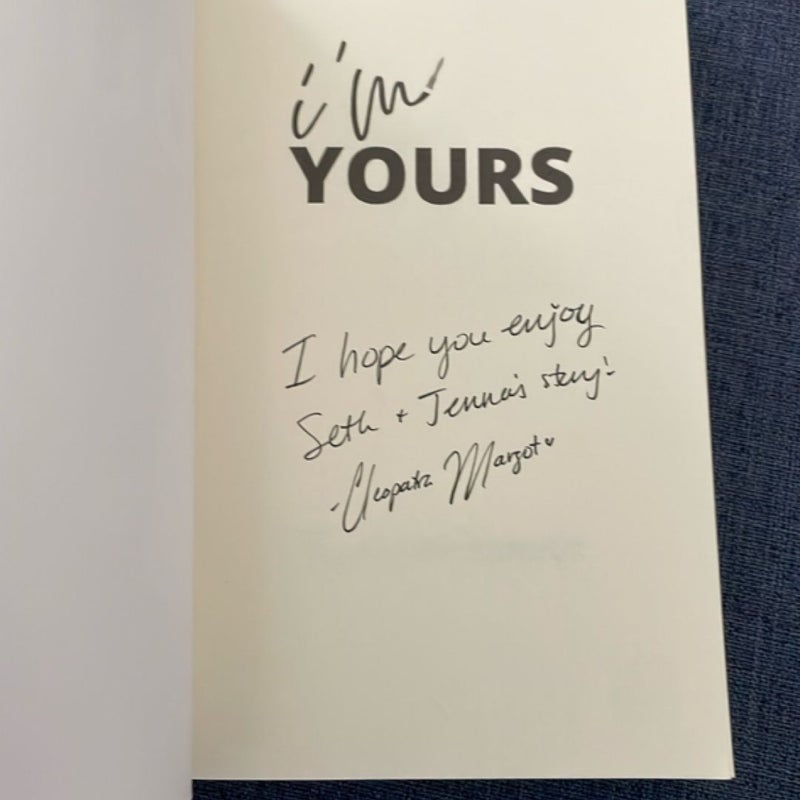 i'm
YOURS
I hope you enjoy
Seth + Jenna's story!
-Cleopatra Margot